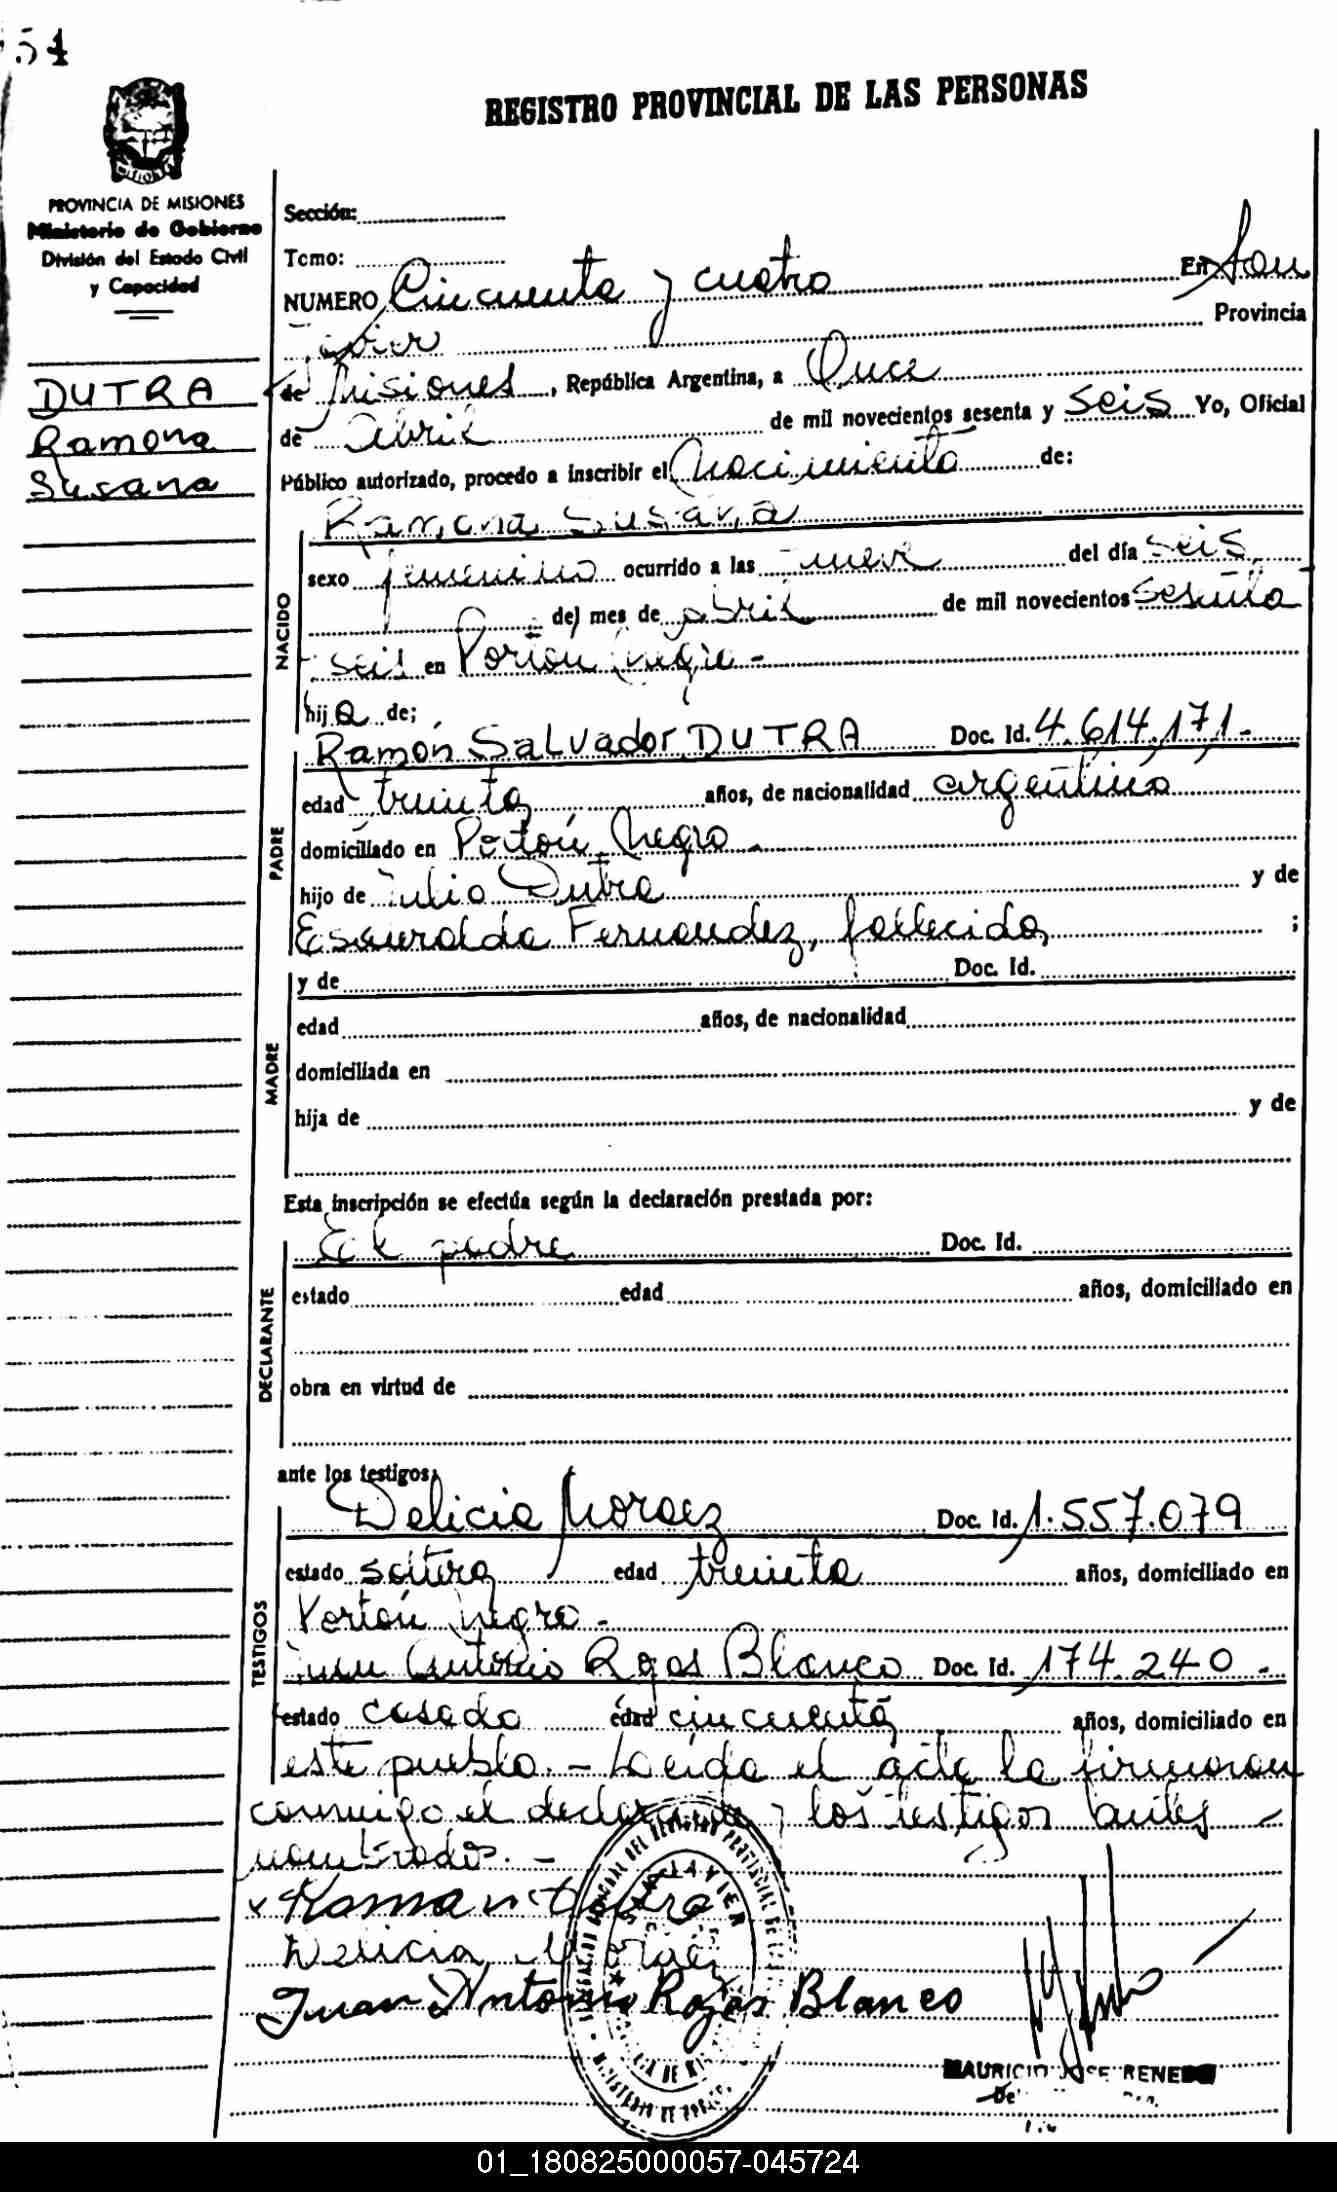 54
REGISTRO PROVINCIAL DE LAS PERSONAS
PROVINCIA DE MISIONES
Ministerio de Gobierno
División del Estado Civil
y Capacidad
DUTRA
Ramona
Susana
Sección:
Tomo:
NUMERO Cincuenta y cuatro En San
Javier Provincia
de Misiones, República Argentina, a Once
de abril de mil novecientos sesenta y seis Yo, Oficial
Público autorizado, procedo a inscribir el Nacimiento de:
NACIDO
Ramona Susana
sexo femenino ocurrido a las nueve del día seis
del mes de abril de mil novecientos sesenta
seis en Portón Negro -
hija de;
PADRE
Ramón Salvador DUTRA Doc. Id. 4.614.171.-
edad treinta años, de nacionalidad argentino
domiciliado en Portón Negro.
hijo de Julio Dutra y de
Esmeralda Fernandez, fallecida ;
MADRE
y de Doc. Id.
edad años, de nacionalidad
domiciliada en
hija de y de
Esta inscripción se efectúa según la declaración prestada por:
DECLARANTE
El padre Doc. Id.
estado edad años, domiciliado en
obra en virtud de
ante los testigos,
TESTIGOS
Delicia Moraez Doc. Id. 1.557.079
estado soltera edad treinta años, domiciliado en
Portón Negro -
Juan Antonio Rojas Blanco Doc. Id. 174.240 -
estado casado edad cincuenta años, domiciliado en
este pueblo. - Leída el acta la firmaron
conmigo el declarante y los testigos antes
nombrados. -
x Roman Dutra
Delicia Moraez
Juan Antonio Rojas Blanco
MAURICIO JOSE RENE
01_180825000057-045724